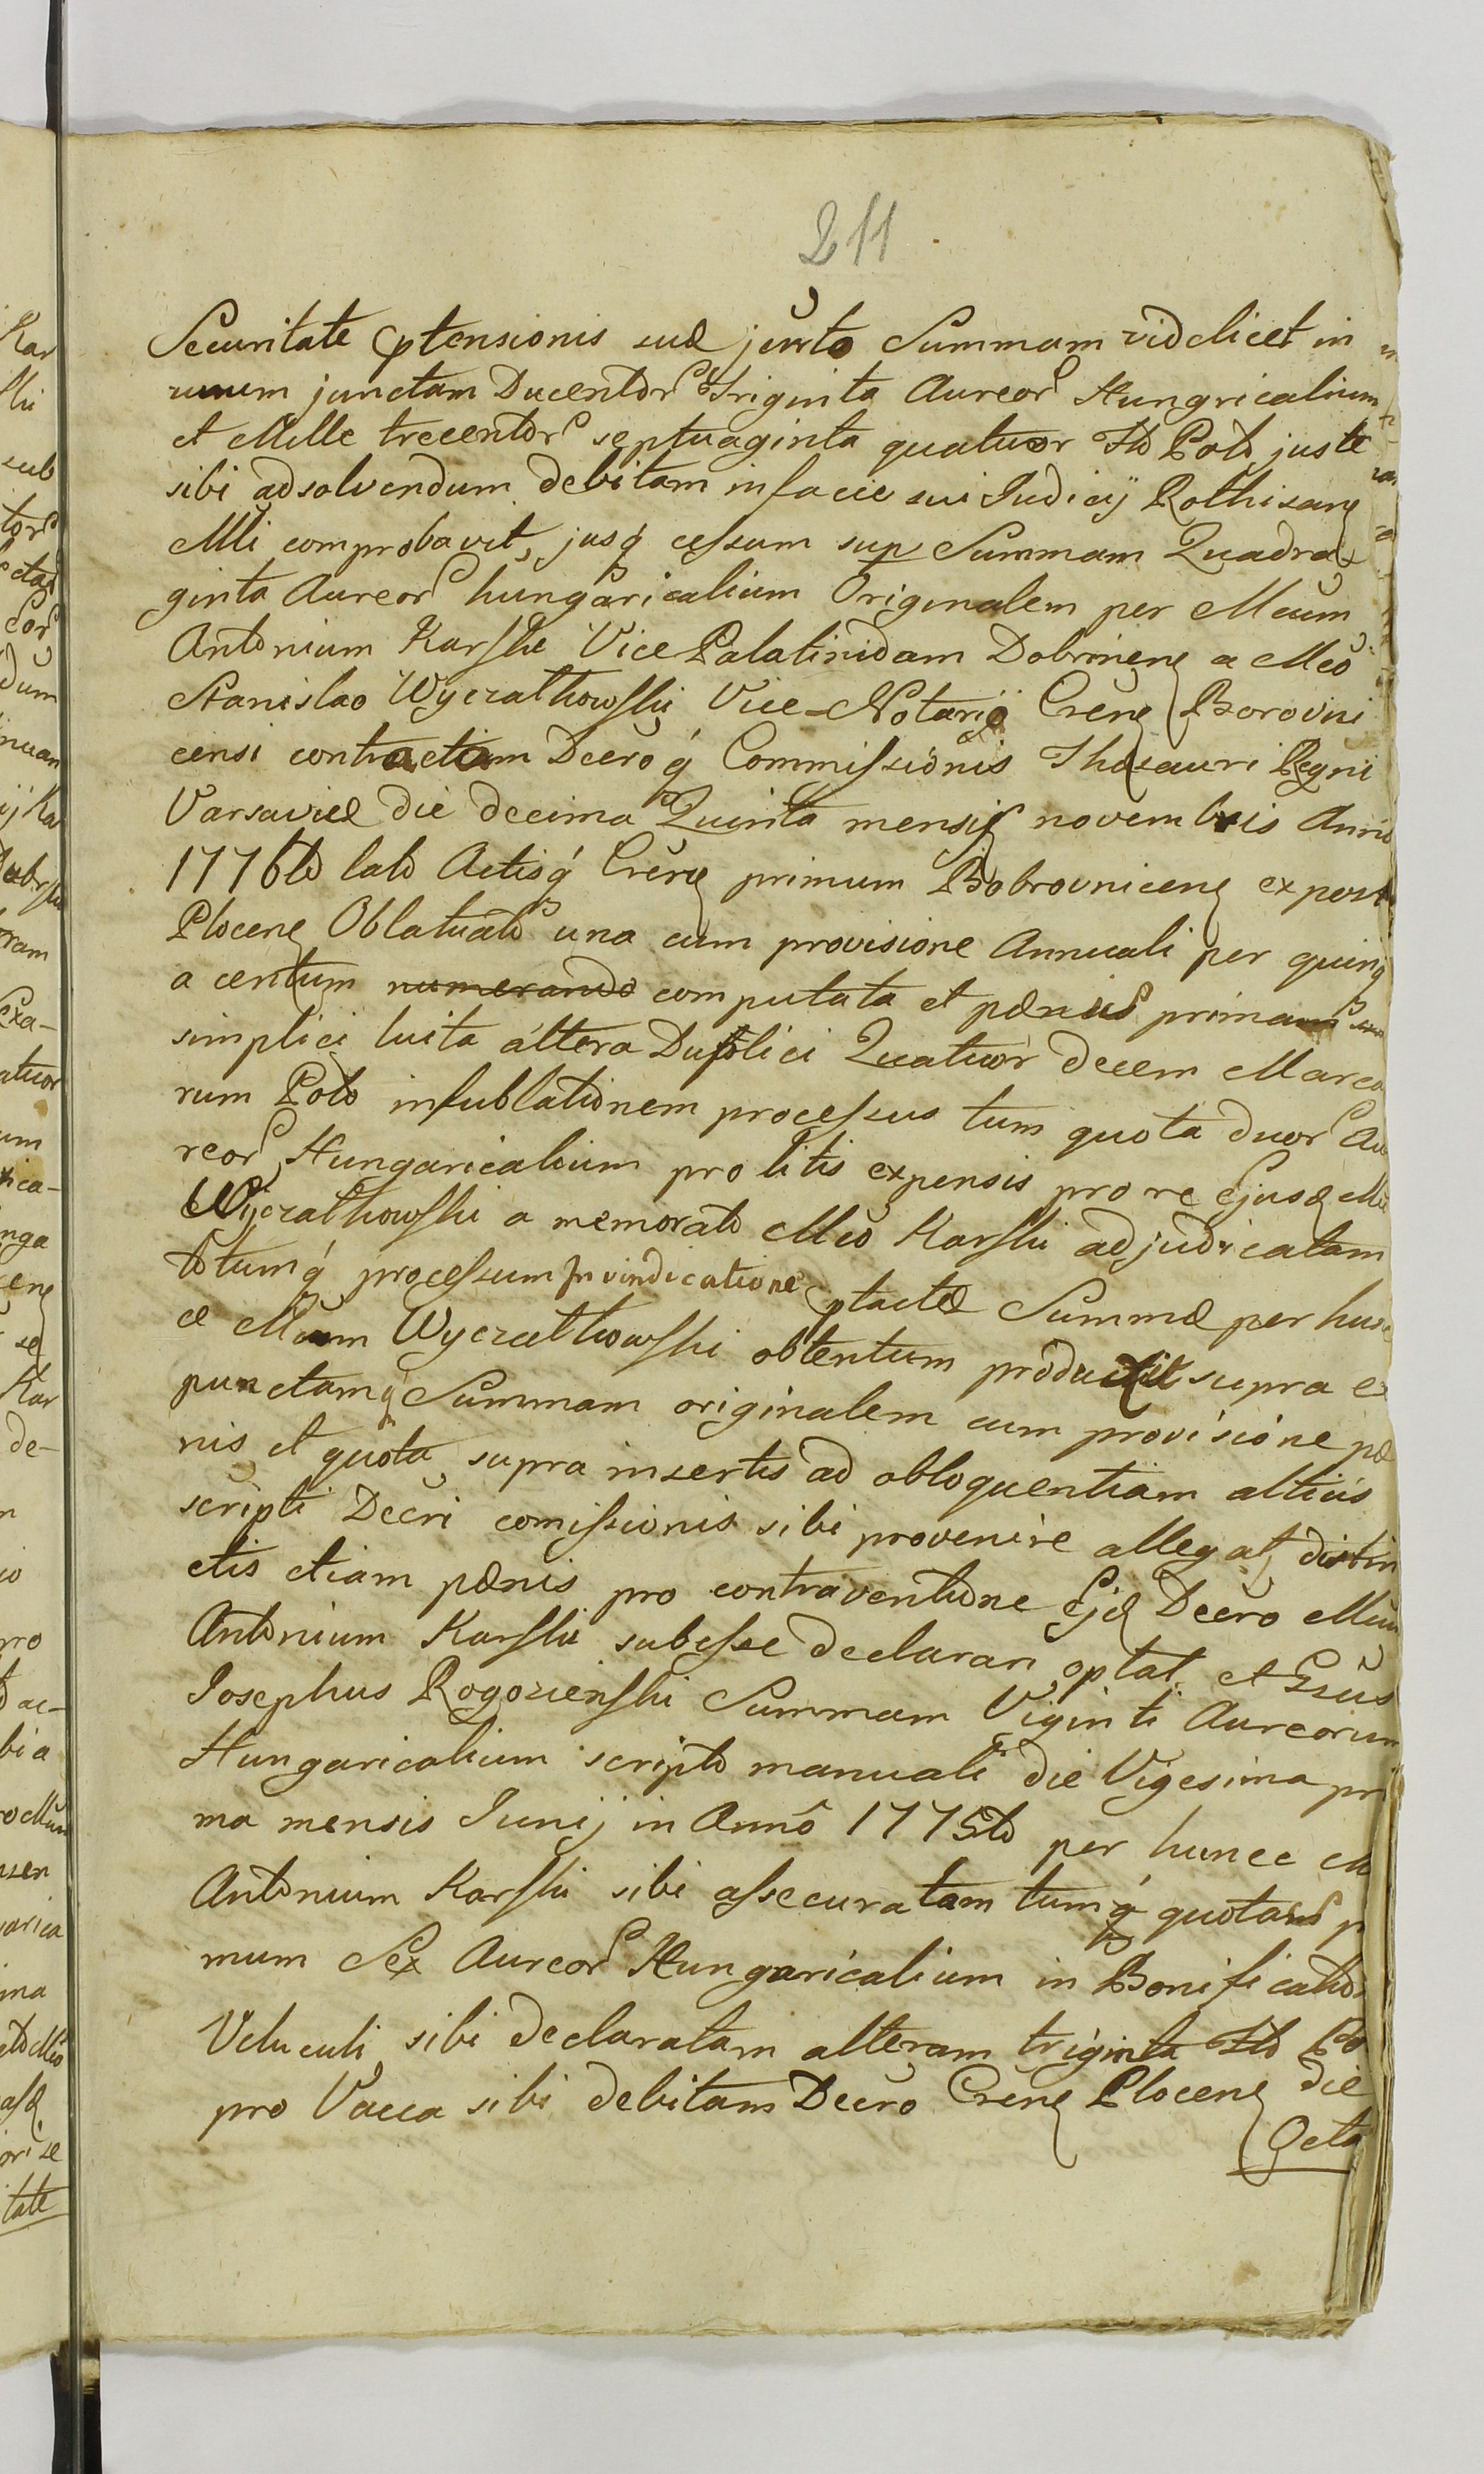 211
Securitate Ptensionis suæ juxta Summam videlicet in
unum junctam Ducentor Triginta Aureor Hungricalium
et Mille trecentor septuaginta quatuor Flo Polo juste
sibi adsolvendum debitam in facie sui Iudicij Rothisane
Mli comprobavit, jusq cessum sup Summam Quadra
ginta Aureor hungaricalium Originalem per Mcum
Antonium Karski Vice Palatinidam Dobrinene a Mco
Stanislao Wyczałkowski Vice-Notario Crene Borovni
censi contractam Dcero q Commissionis Thesauri Regni
Varsaviæ die decima Quinta mensis novembris Anno
1776to lato Actisq Crene primum Bobrovnicene expost
Plocene Oblatuato una cum provisione Annuali per quinq
a centum numerando computata et pænis primam
simplici luita altera Duplici Quatuor decem Marca
rum Polo in sublationem processus tum quota duor Au
reor Hungaricalium pro litis expensis pro re Ejusd Mci
Wyczałkowski a memorato Mco Karski adjudicatam
totumq processum in vindicatione Ptactæ Summæ per hunc
ce Mcum Wyczałkowski obtentum producit supra ex
punctamq Summam originalem cum provisione pæ
nis et quota supra insertis ad obloquentiam altius
scripti Decri comissionis sibi provenire allegat, distin
ctis etiam pænis pro contraventione Ejd Decro Mcum
Antonium Karski subesse declarari optat, et Gsus
Iosephus Rogozienski Summam Viginti Aureorum
Hungaricalium scripto manuali die Vigesima pri
ma mensis Iunij in Anno 1775to per huncce M
Antonium Karski sibi assecuratam tumq quotas p
mum Sex Aureor Hungaricalium in Bonificatio
Vehiculi sibi declaratam alteram triginta Flo Po
pro Vacca sibi debitam Decro Crene Plocene die
Octa